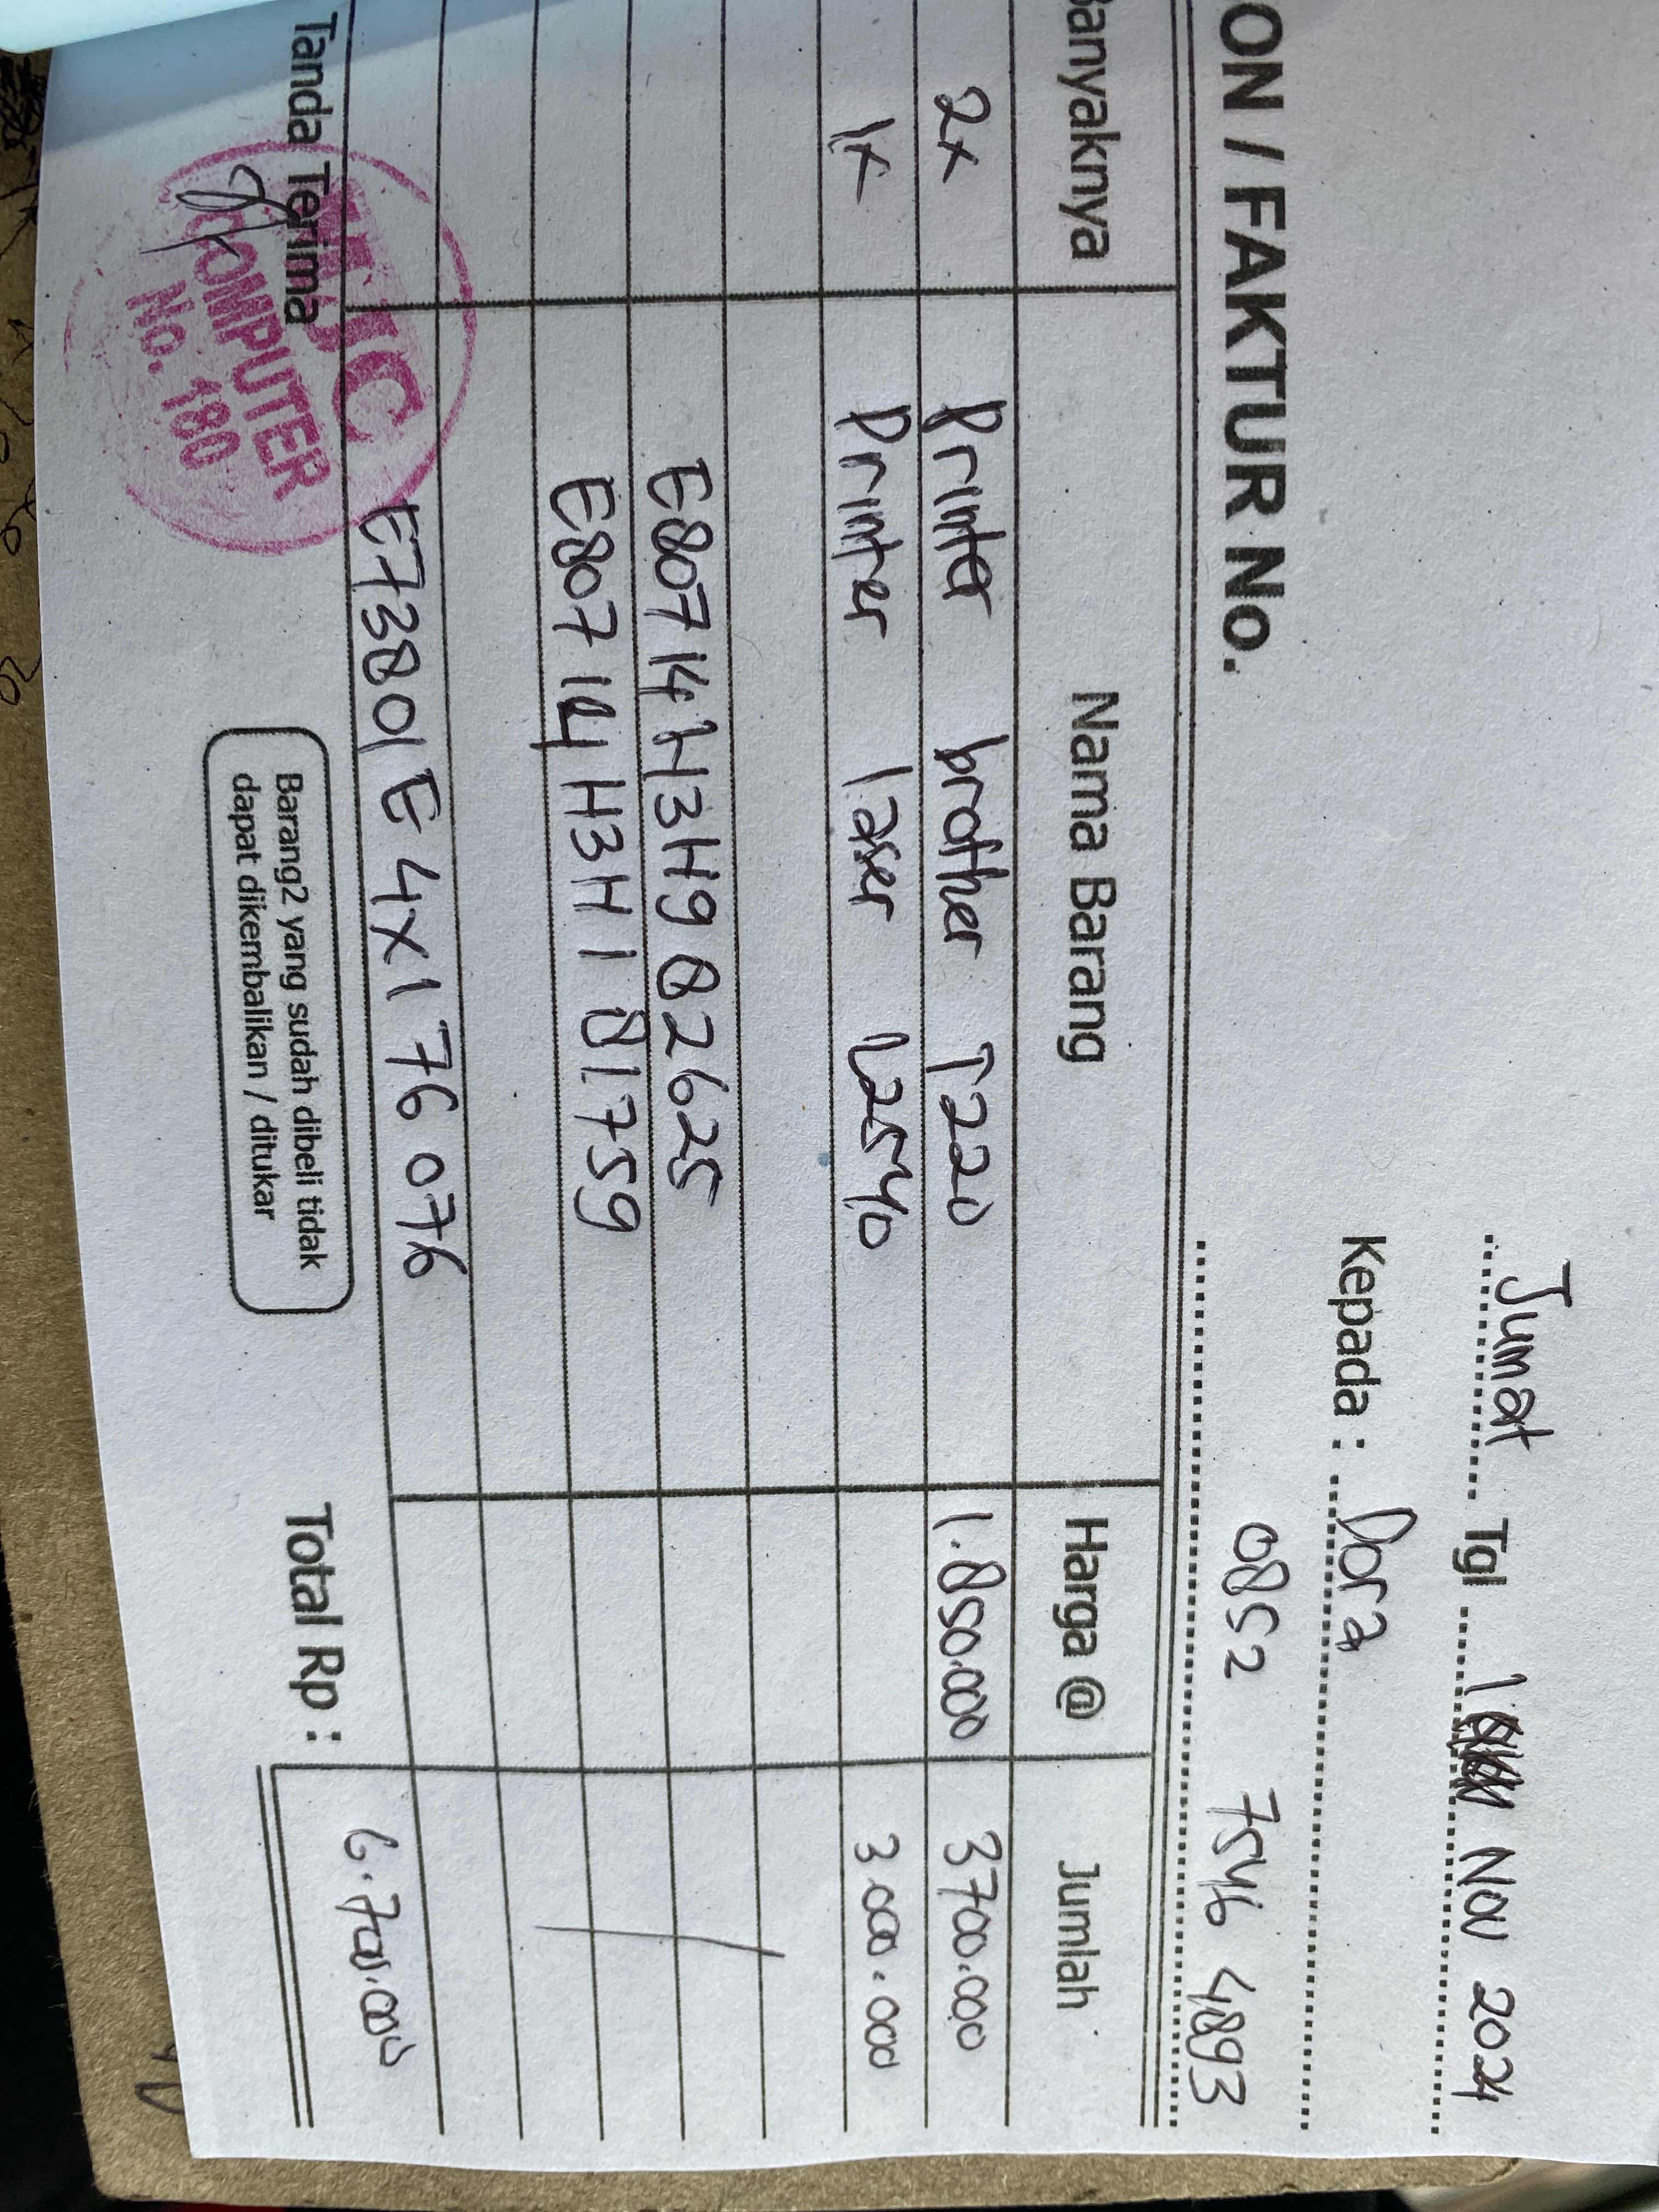 Jumat Tgl 1 Nov 2024
Kepada : Dora
0852 7546 4893
ON / FAKTUR No.
Banyaknya Nama Barang Harga @ Jumlah
2x Printer brother T220 1.850.000 3700.000
1x Printer laser L2540 3.000.000
E80714H3H982625
E80714H3H181759
E73801E4X176076
Tanda Terima
COMPUTER
No. 180
Barang2 yang sudah dibeli tidak
dapat dikembalikan / ditukar
Total Rp : 6.700.000